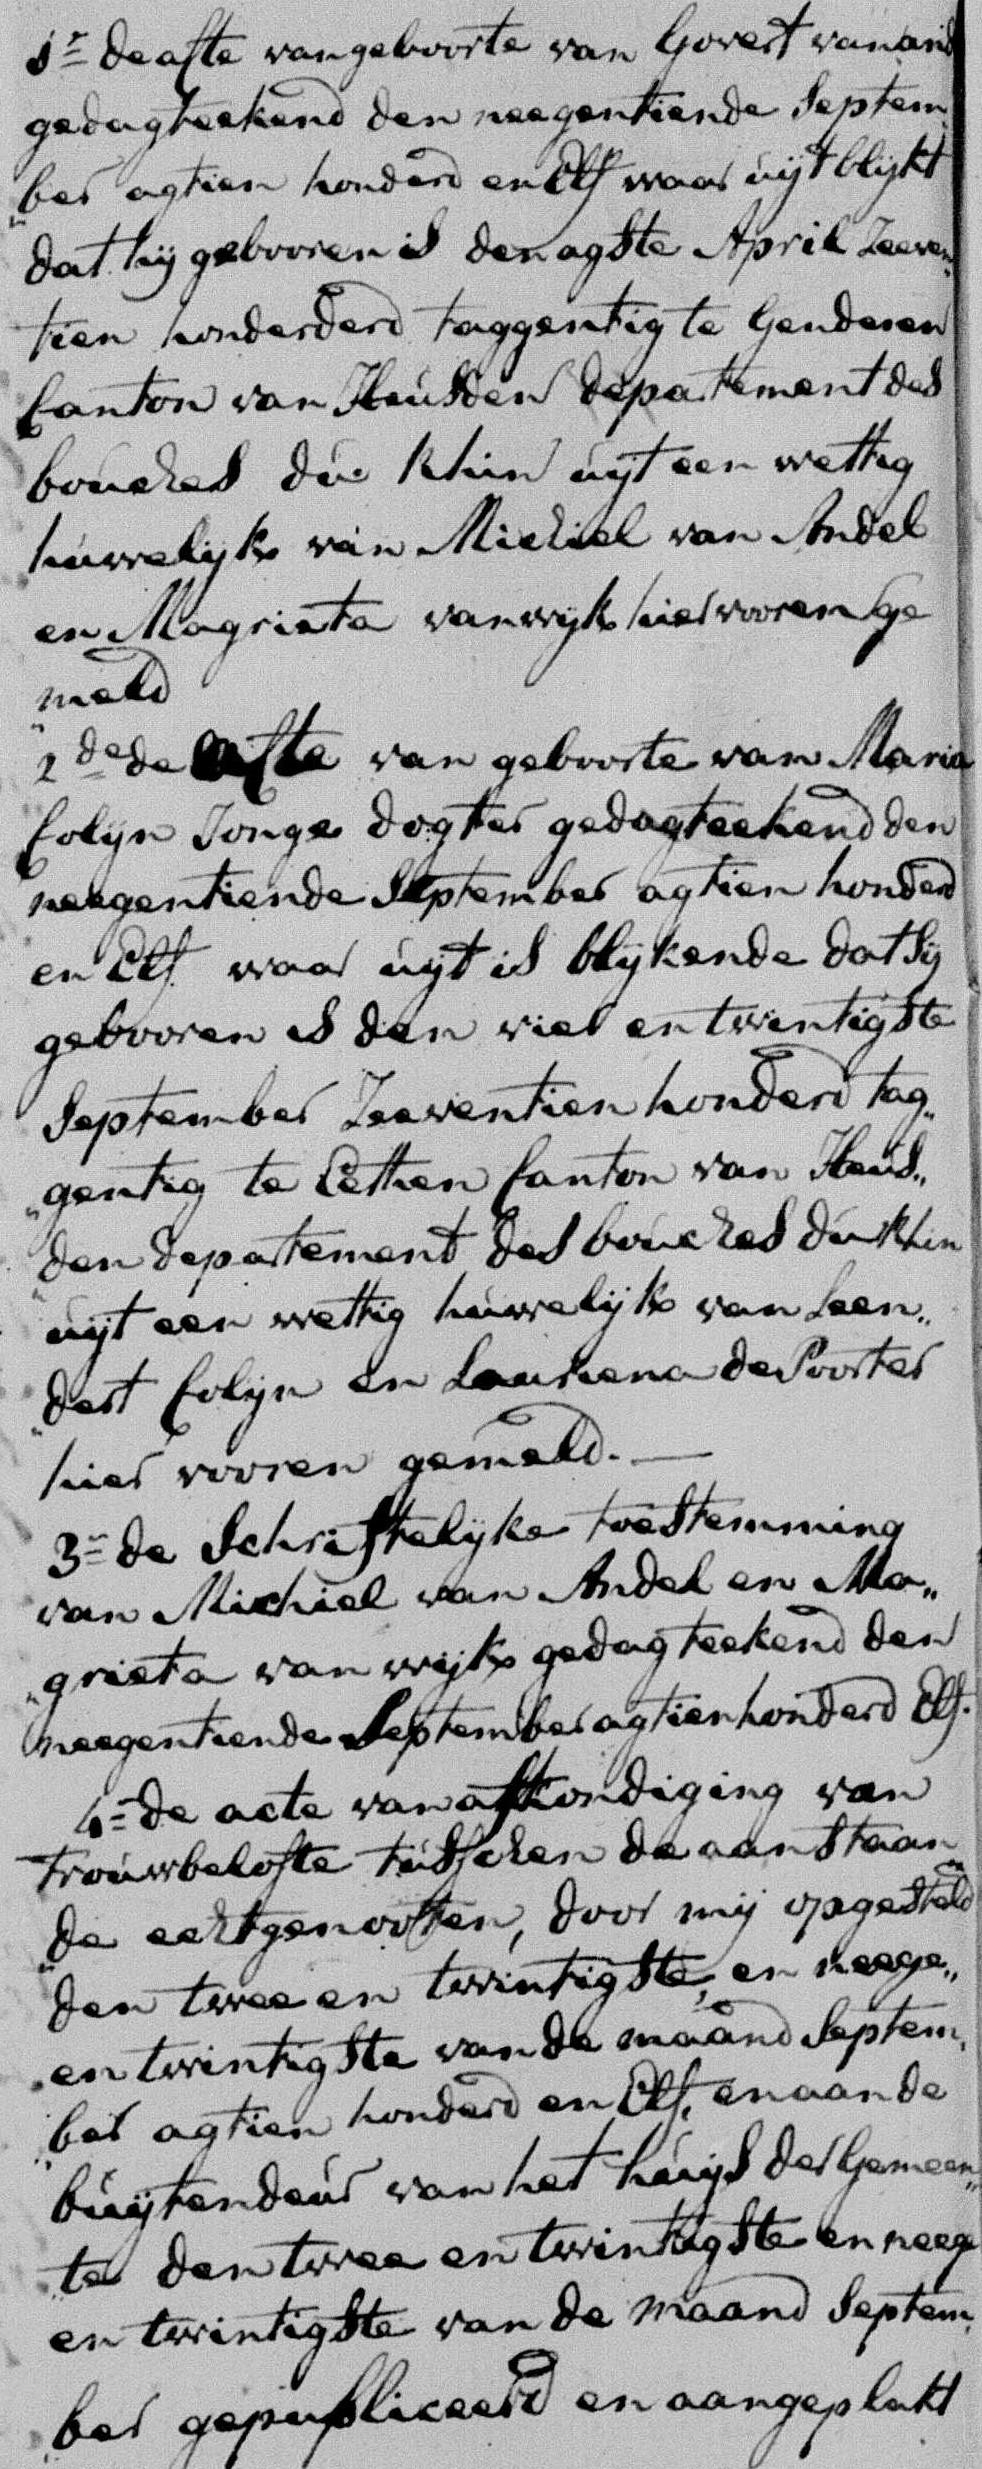 1e de afte van geboorte van Govert van and
gedagteekend den neegentiende Septem„
„ber agtien honderd en Elf waar uijt blijkt
dat hij gebooren is den agste April Zeeven„
tien honderderd taggentig te Genderen
Canton van Heusden departement des
bouches du Rhin uijt een wettig
huwelijk van Michiel van Andel
en Magrieta van wijk hier vooren ge
„meld
2de de afte van geboorte van Maria
Colijn Jonge dogter gedagteekend den
neegentiende September agtien honderd
en Elf waar uijt is blijkende dat Sij
gebooren is den vier en twentigste
September Zeeventien honderd tag„
„gentig te Eethen Canton van Heus„
„den departement des bouches du Rhin
uijt een wettig huwelijk van Leen„
„dert Colijn en Laurena de Poorter
hier vooren gemeld. —
3e de Schriftelijke toestemming
van Michiel van Andel en Ma„
„grieta van wijk gedagteekend den
neegentiende September agtien honderd Elf.
4e de acte van afkondiging van
trouwbelofte tusschen de aanstaan„
„de eechtgenooten, door mij opgesteld
den twee en twintigste, en neege„
„en twintigste van de maand Septem„
„ber agtien honderd en Elf, en aan de
buijtendeur van het huijs der Gemeen„
„te den twee en twintigste en neege
en twintigste van de maand Septem„
„ber gepubliceerd en aangeplakt